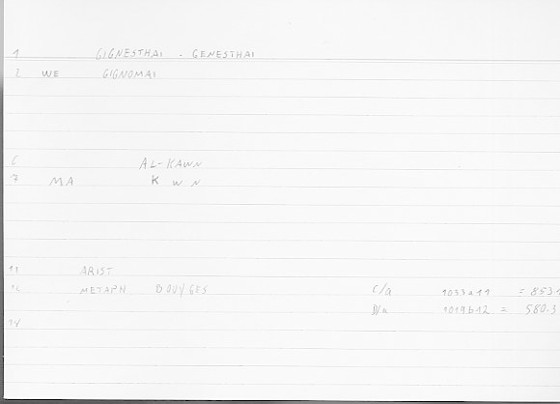 1 GIGNESTHAI - GENESTHAI
2 WE GIGNOMAI
6 AL-KAWN
7 MA K W N
11 ARIST
12 METAPH BOUYGES C/a 1033a11 = 853.1
1019b12 = 580.3
14